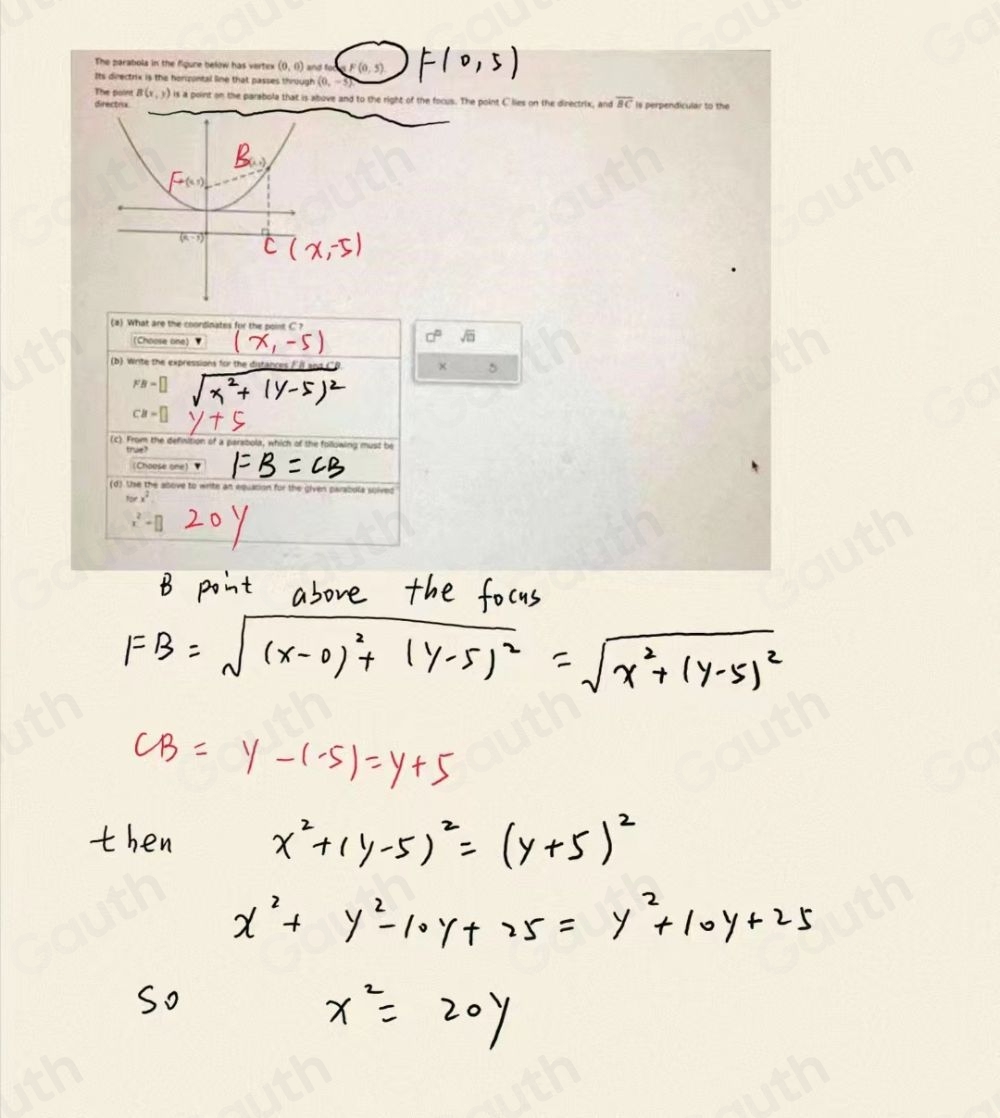 The parabola in the figure below has vertex (0, 0) and focus F (0, 5). F(0,5)
Its directrix is the horizontal line that passes through (0, -5).
The point B(x, y) is a point on the parabola that is above and to the right of the focus. The point C lies on the directrix, and BC is perpendicular to the
directrix.
B (x, y)
F (0, 5)
(0, -5)
C (x,-5)
(a) What are the coordinates for the point C?
(Choose one) ▼ (x,-5)
(b) Write the expressions for the distances FB and CB.
FB=▯ √x²+(y-5)²
CB=▯ y+5
(c) From the definition of a parabola, which of the following must be
true?
(Choose one) ▼ FB=CB
(d) Use the above to write an equation for the given parabola solved
for x².
x²=▯ 20y
× 5
B point above the focus
FB= √(x-0)²+(y-5)² = √x²+(y-5)²
CB= y-(-5)=y+5
then x²+(y-5)²=(y+5)²
x²+y²-10y+25=y²+10y+25
so x²=20y
Gauth